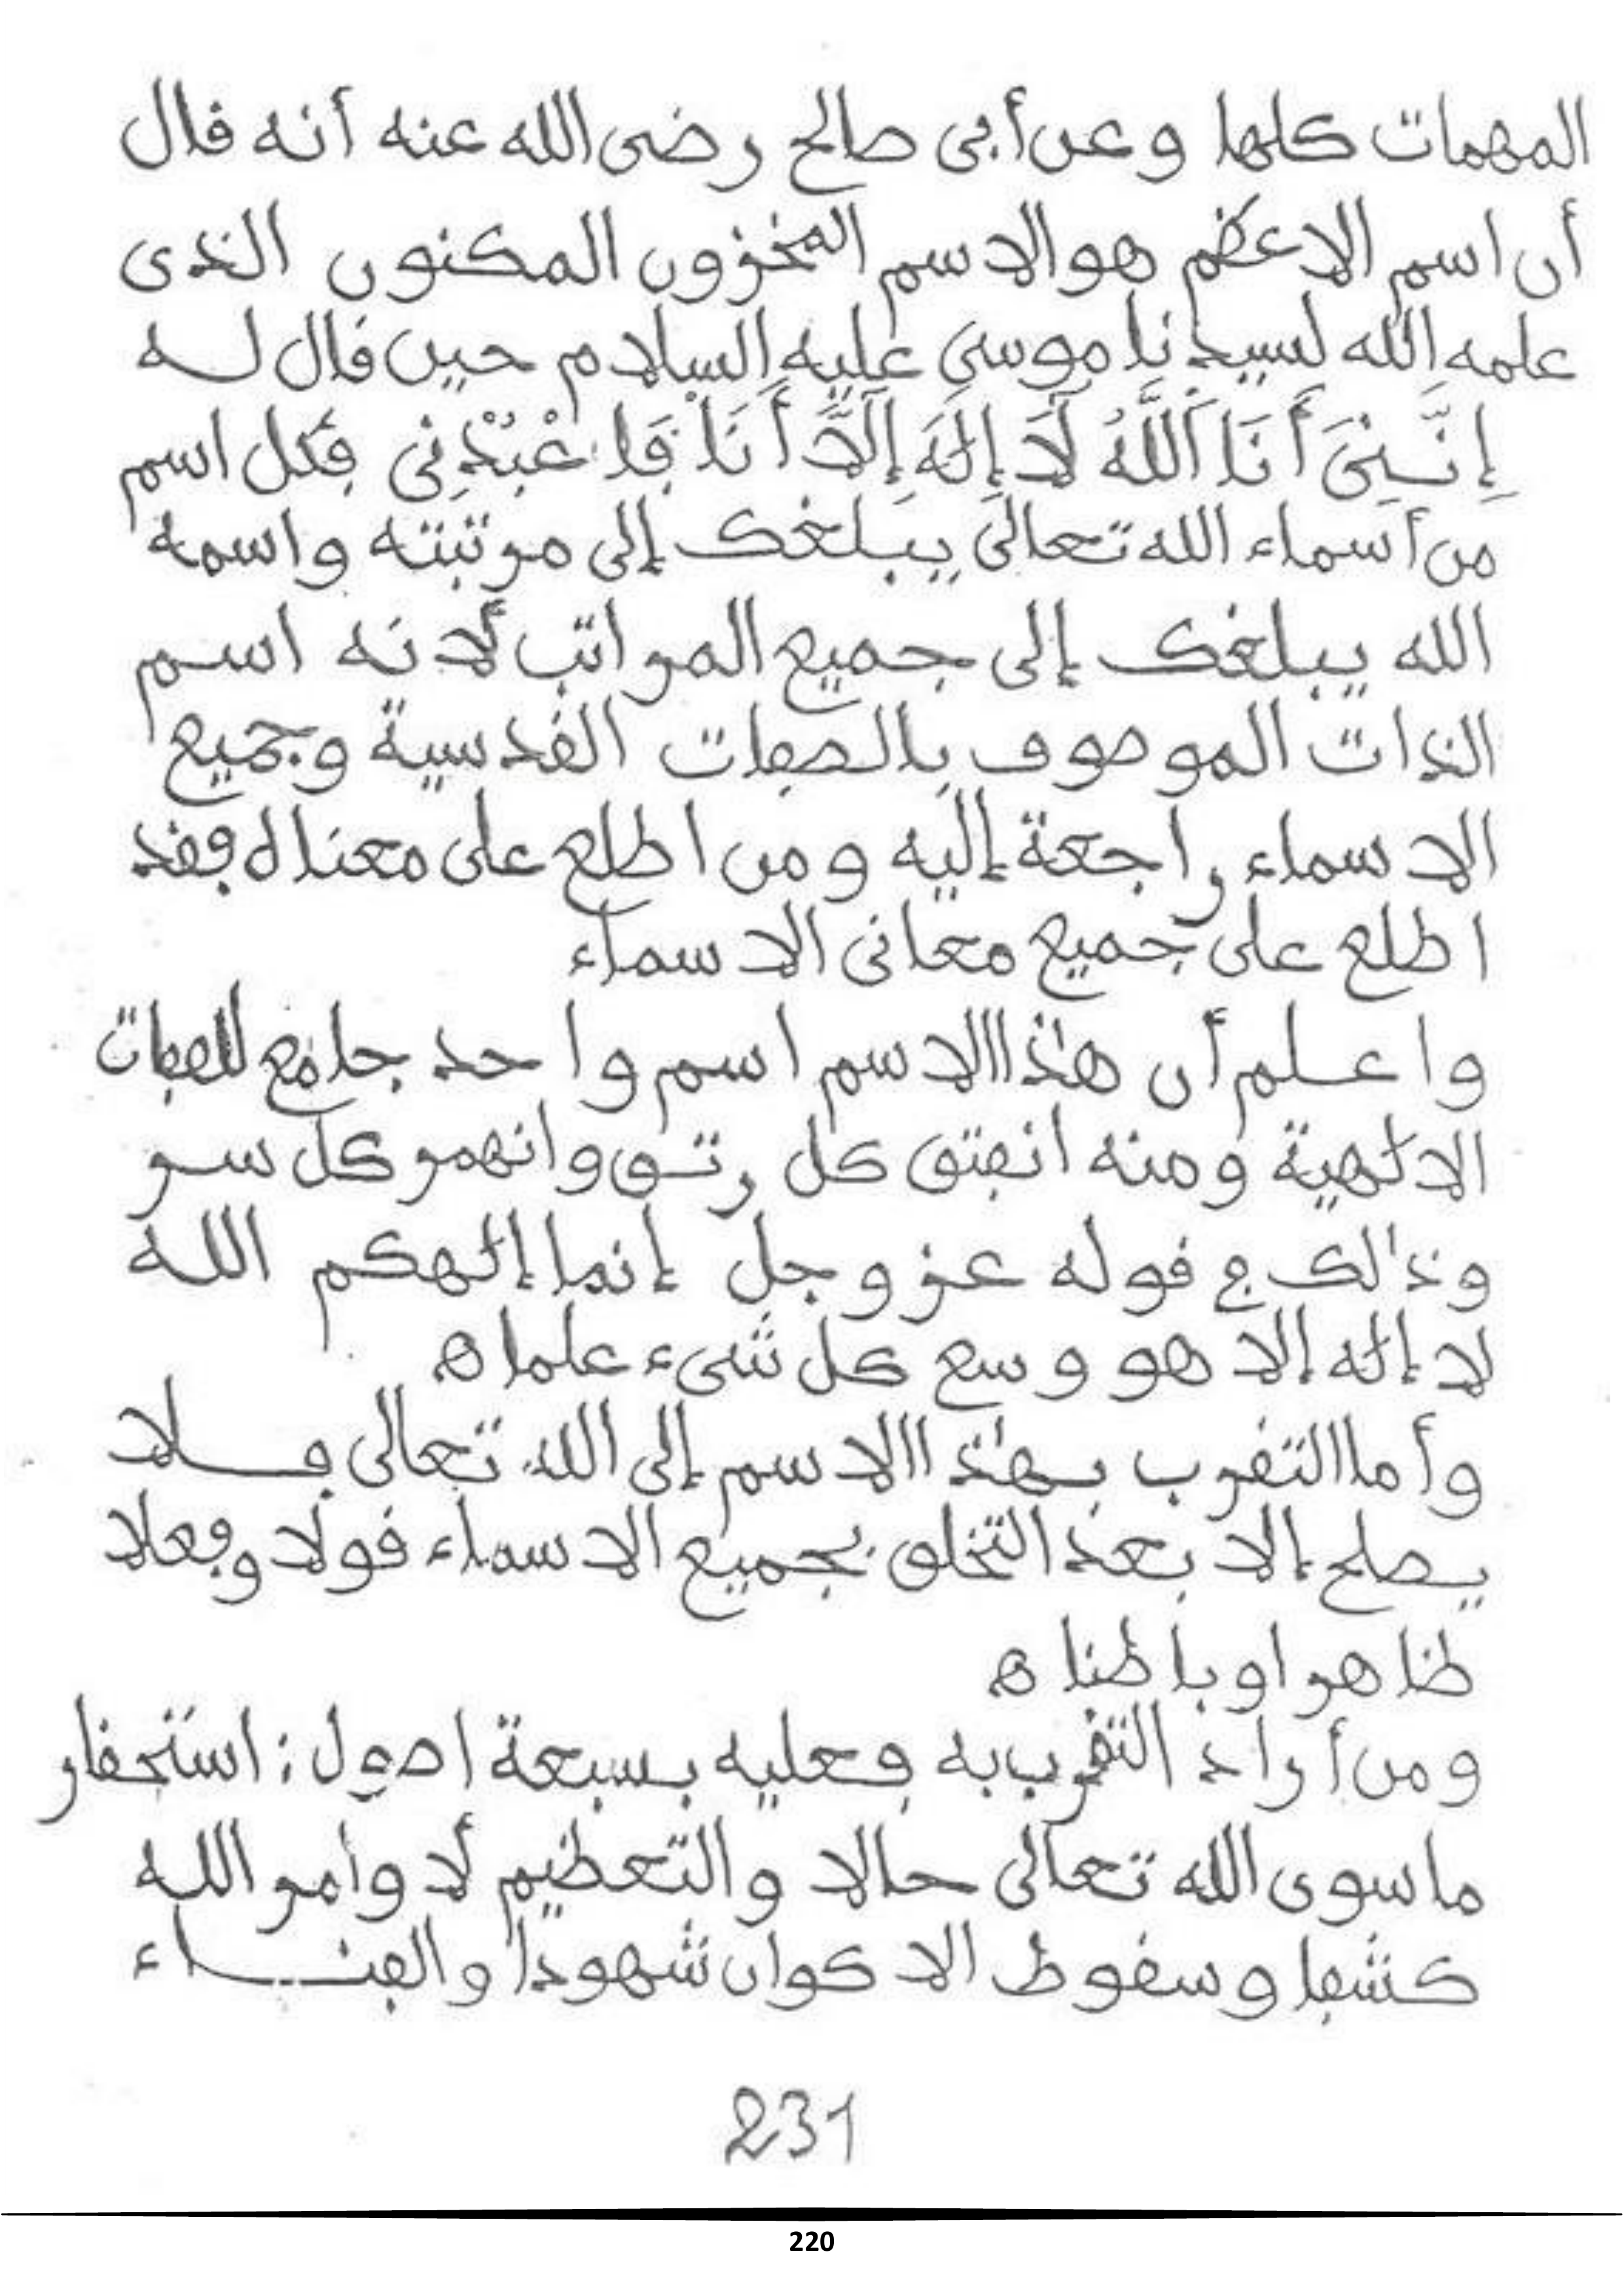 المهمات كلها وعن أبى صالح رضى الله عنه أنه قال
أن اسم الاعظم هو الاسم المخزون المكنون الذى
علمه الله لسيدنا موسى عليه السلام حين قال له
إِنَّنِىَ أَنَا اَللَّهُ لَا إِلَٰهَ إِلَّا أَنَا فَاعْبُدْنِى فكل اسم
من أسماء الله تعالى يبلغك إلى مرتبته واسمه
الله يبلغك إلى جميع المراتب لأنه اسم
الذات الموصوف بالصفات القدسية وجميع
الاسماء راجعة إليه ومن اطلع على معناه فقد
اطلع على جميع معانى الاسماء
واعلم أن هذا الاسم اسم واحد جامع للصفات
الالهية ومنه انفتق كل رتق وانهمر كل سر
وذالك في قوله عز وجل إنما إلهكم الله
لا إله إلا هو وسع كل شىء علما ه
وأما التقرب بهذا الاسم إلى الله تعالى فلا
يصلح إلا بعد التخلق بجميع الاسماء قولا وفعلا
ظاهرا وباطنا ه
ومن أراد التقرب به فعليه بسبعة اصول: استحقار
ما سوى الله تعالى حالا والتعظيم لأوامر الله
كشفا وسقوط الاكوان شهودا والفناء
231
220